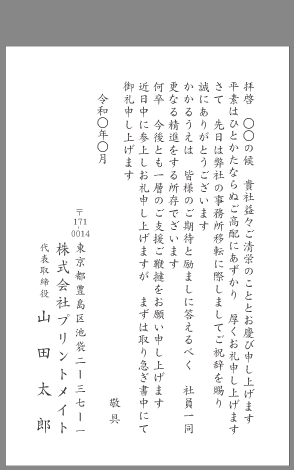 拝啓　〇〇の候　貴社益々ご清栄のこととお慶び申し上げます
平素はひとかたならぬご高配にあずかり　厚くお礼申し上げます
さて　先日は弊社の事務所移転に際しましてご祝辞を賜り
誠にありがとうございます
かかるうえは　皆様のご期待と励ましに答えるべく　社員一同
更なる精進をする所存でいます
何卒　今後とも一層のご支援ご鞭撻をお願い申し上げます
近日中に参上しお礼申し上げますが　まずは取り急ぎ書中にて
御礼申し上げます
敬具
令和〇年〇月
〒171
0014
東京都豊島区池袋二ー三七ー一
株式会社プリントメイト
代表取締役　山田太郎